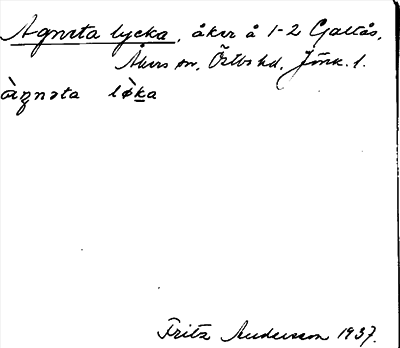 Agneta lycka, åker å 1-2 Galtås,
Åkers sn, Östbo hd, Jönk. l.
àꞑnəta lø̀ka
Fritz Andersson 1937.